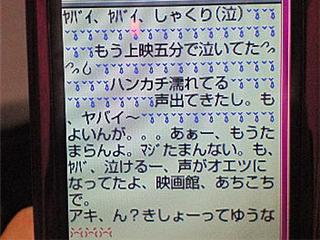 ﾔﾊﾞｲ、ﾔﾊﾞｲ、しゃくり(泣)
もう上映五分で泣いてた
ハンカチ濡れてる
声出てきたし。も
、ヤバイ〜
よいんが。。。あぁー、もうた
まらんよ。ﾏｼﾞたまんない。も、
ﾔﾊﾞ、泣けるー、声がオエツに
なってたよ、映画館、あちこち
で。
アキ、ん？きしょーってゆうな